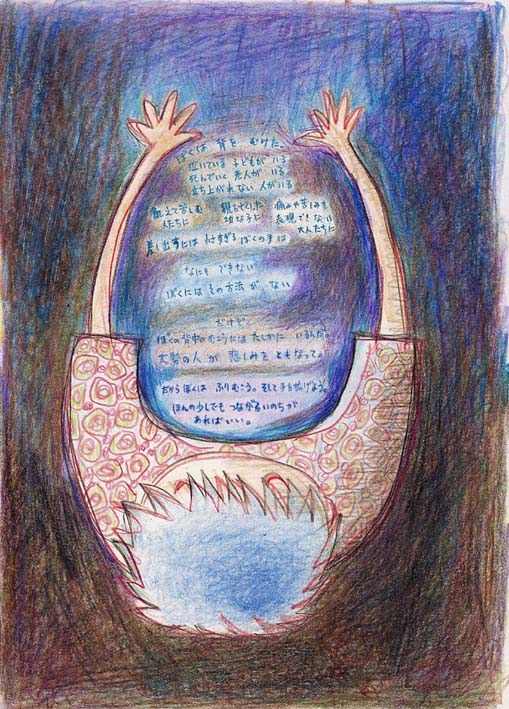 ぼくは 背を むけた。
泣いている 子どもが いる
死んでいく 老人が いる
立ち上がれない 人がいる
飢えて苦しむ 親を亡くした 痛みや苦しみを
人たちに 幼な子に 表現できない
大人たちに
差し出すには 小さすぎる ぼくの手は
なにも できない
ぼくには その方法が ない
だけど
ぼくの背中のむこうには たしかに いるんだ。
大勢の人が 悲しみを ともなって。
だから ぼくは ふりむこう。そして手を拡げよう。
ほんの少しでも つながるいのちが
あればいい。